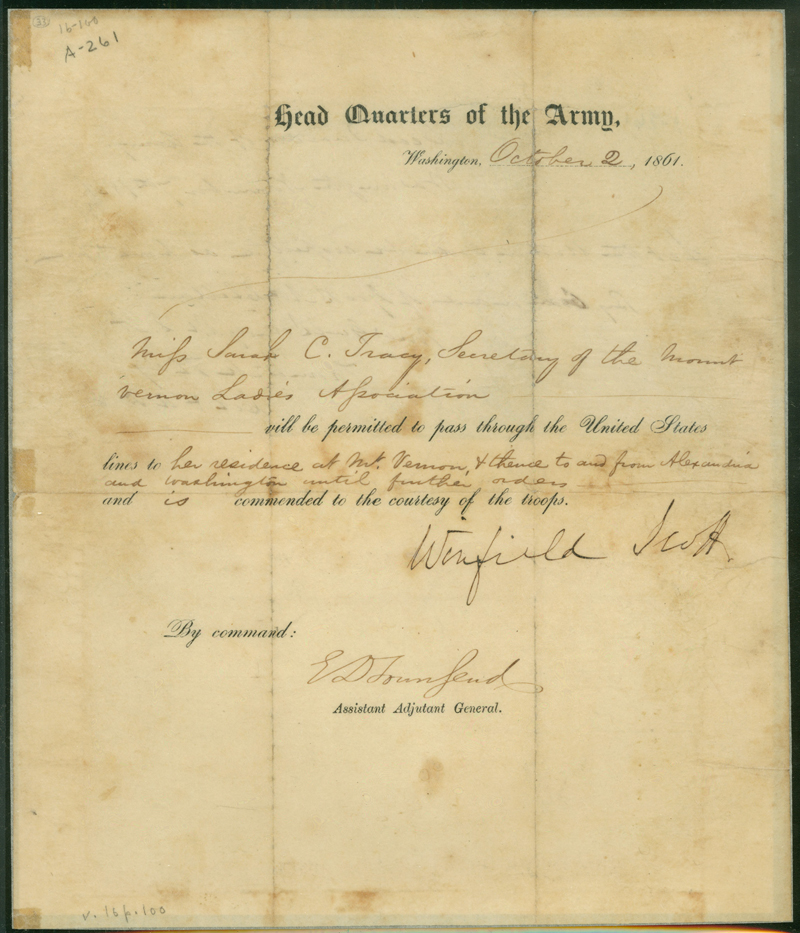 16-100
A-261
Head Quarters of the Army,
Washington, October 2, 1861.
Miss Sarah C. Tracy, Secretary of the Mount
Vernon Ladies Association
will be permitted to pass through the United States
lines to her residence at Mt. Vernon, & thence to and from Alexandria
and Washington until further orders
and is commended to the courtesy of the troops.
Winfield Scott.
By command:
E D Townsend
Assistant Adjutant General.
v. 16 p. 100